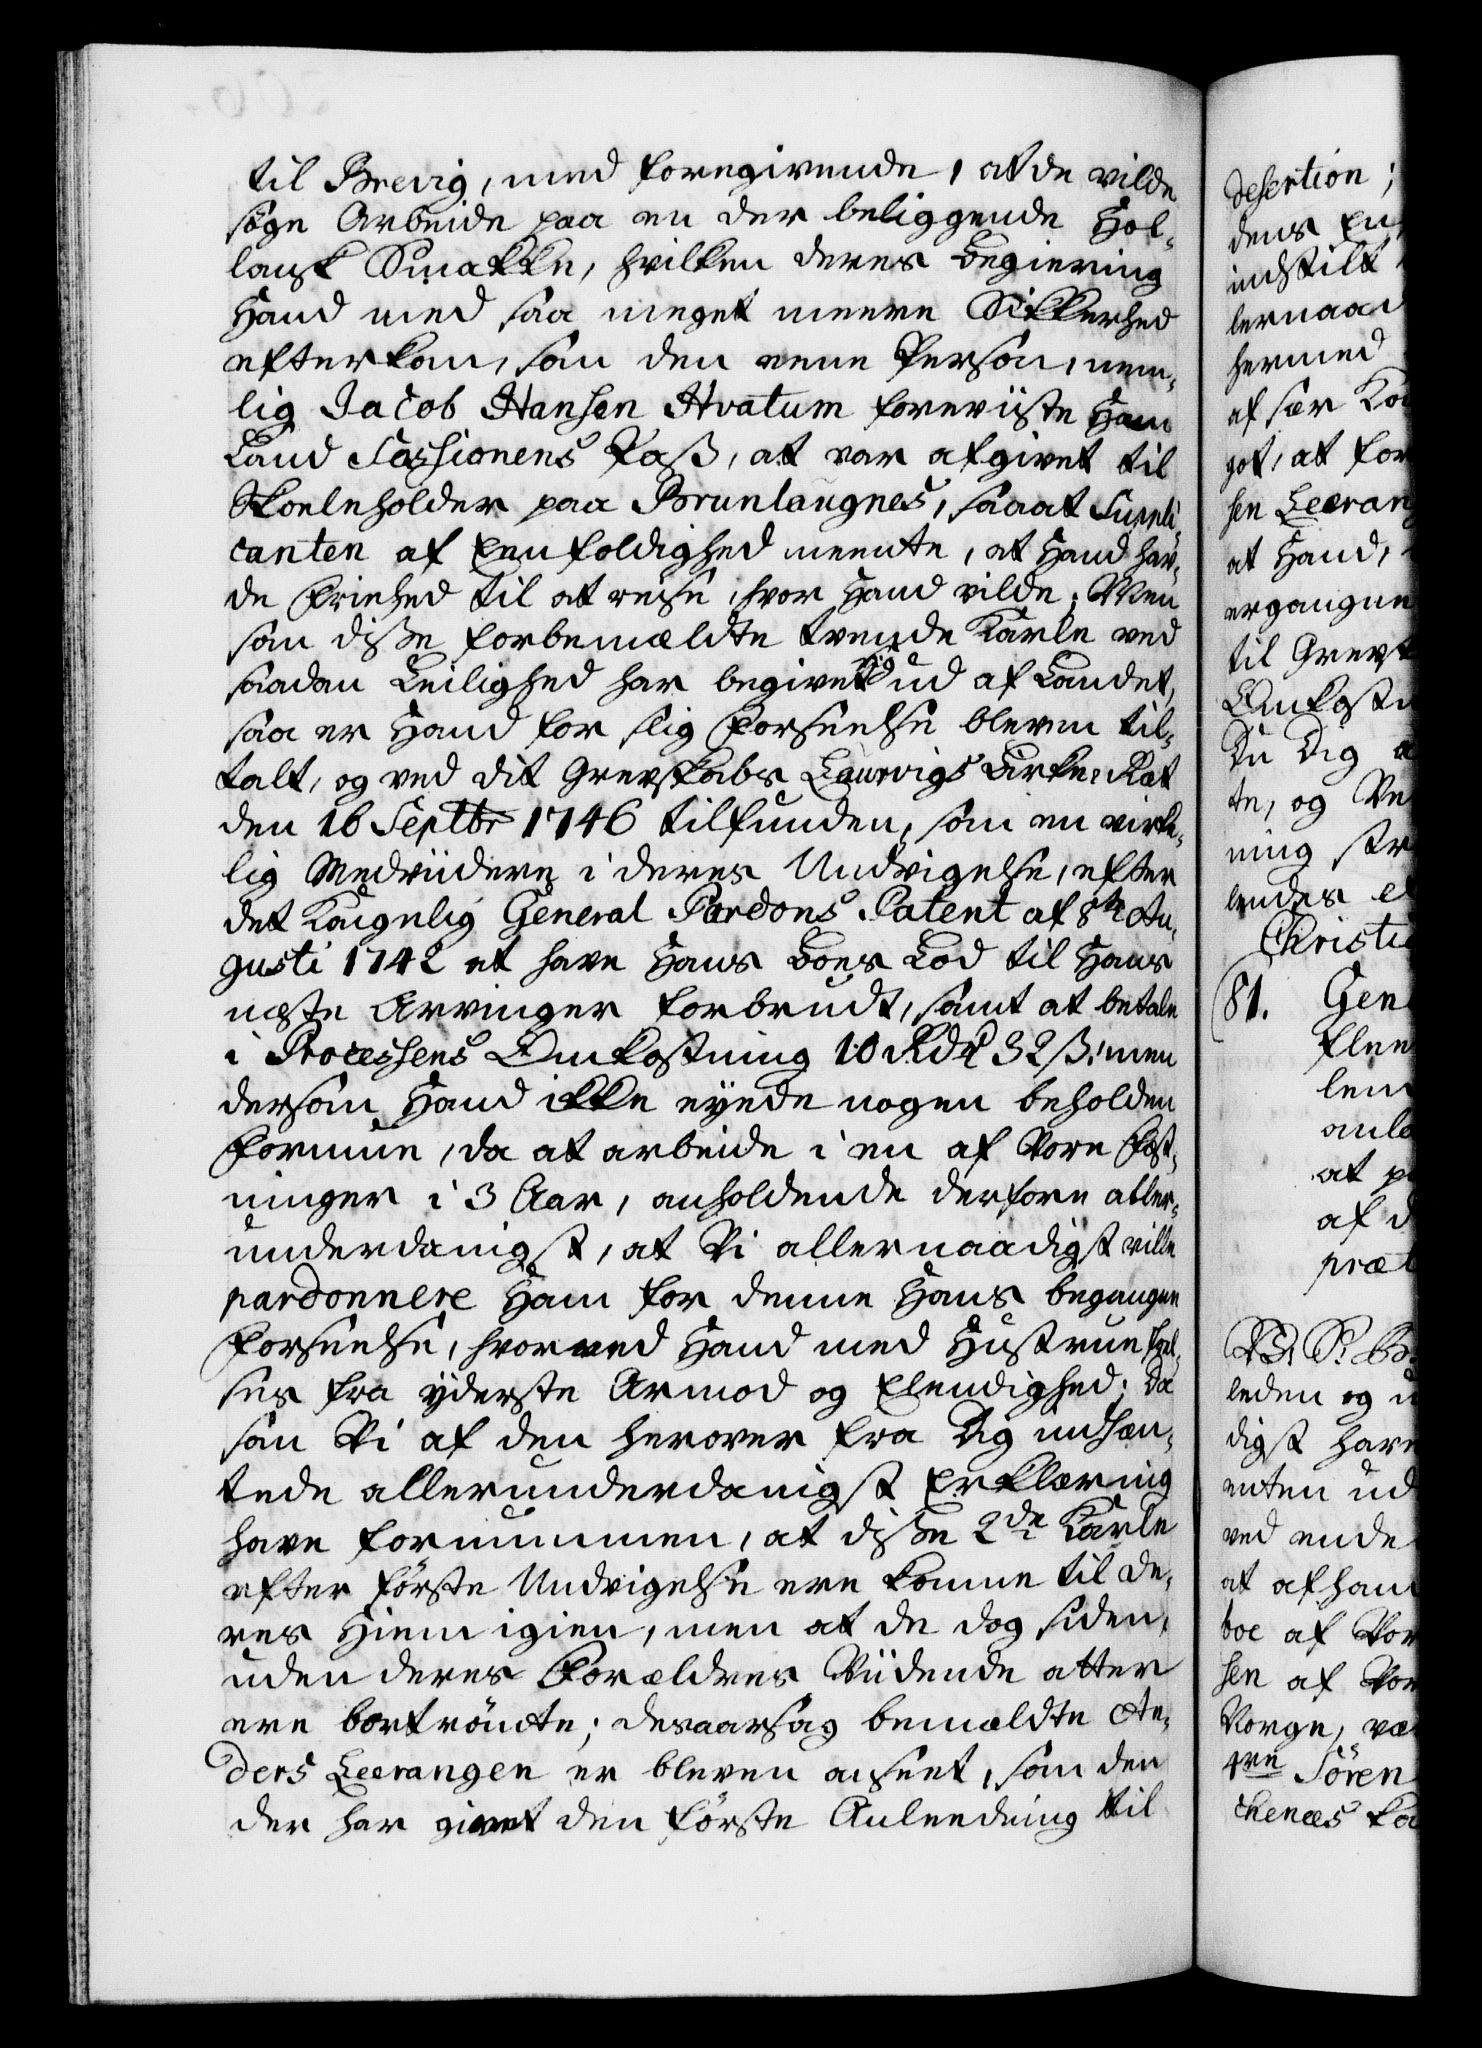 til Brevig, med foregivende, at de vilde
søge Arbeide paa en der beliggende Hol-
lansk Smakke, hvilken deres Begiering
Hand med saa meget meere Sikkerhed
efterkom, som den eene Person, nem-
lig Jacob Hansen Hvatum foreviiste Ham
Land Sessionens Pass, at var afgivet til
Skoeleholder paa Brunlaugnes, saa at Suppli-
canten af Eenfoldighed meente, at Hand hav-
de Friehed til at reise, hvor Hand vilde; Men
som disse forbemældte tvende Karle ved
saadan Leilighed har begivet sig ud af Landet,
saa er Hand for slig Forseelse bleven til-
talt, og ved dit Grevskabs Laurvigs Birke-Ræt
den 16 Septbr 1746 tilfunden, som en virke-
lig Medviidere i deres Undvigelse, efter
det Kongelig General Pardons Patent af 8de Au-
gusti 1742 at have Hans Boes Lod til Hans
næste Arvinger forbrudt, samt at betale
i Processens Omkostning 10 Rdr 32 ß: men
dersom Hand ikke eyede nogen beholden
Formue, da at arbeide i en af Vore Fæst-
ninger i 3 Aar, anholdende derfore aller-
underdanigst, at Vi allernaadigst ville
pardonnere Ham for denne Hans begangne
Forseelse, hvorved Hand med Hustrue frel-
ses fra yderste Armod og Elendighed; Da
som Vi af den herover fra Dig indhæn-
tede allerunderdanigst Erklæring
have fornummen, at disse 2de Karle
efter første Undvigelse ere komne til de-
res Hiem igien, men at de dog siden,
uden deres Forældres Viidende atter
ere bortrømte; desaarsag bemældte An-
ders Leerangen er bleven anseet, som den
der har givet den første Anleedning til
desertion;
dens
indstilt
lernaad
hermed
af sær
got, at for
sen Leerang
at Hand,
ergangne
til Grevsk
Omkostn
Du Dig
te, og Ve
ning
lendes
Christi
81. Gen
lem
at
af d
præt
leden og
digst have
enten ud
ved ende
at afhan
boe af Vor
sen af Vor
Norge, væ
Søren
chenæs